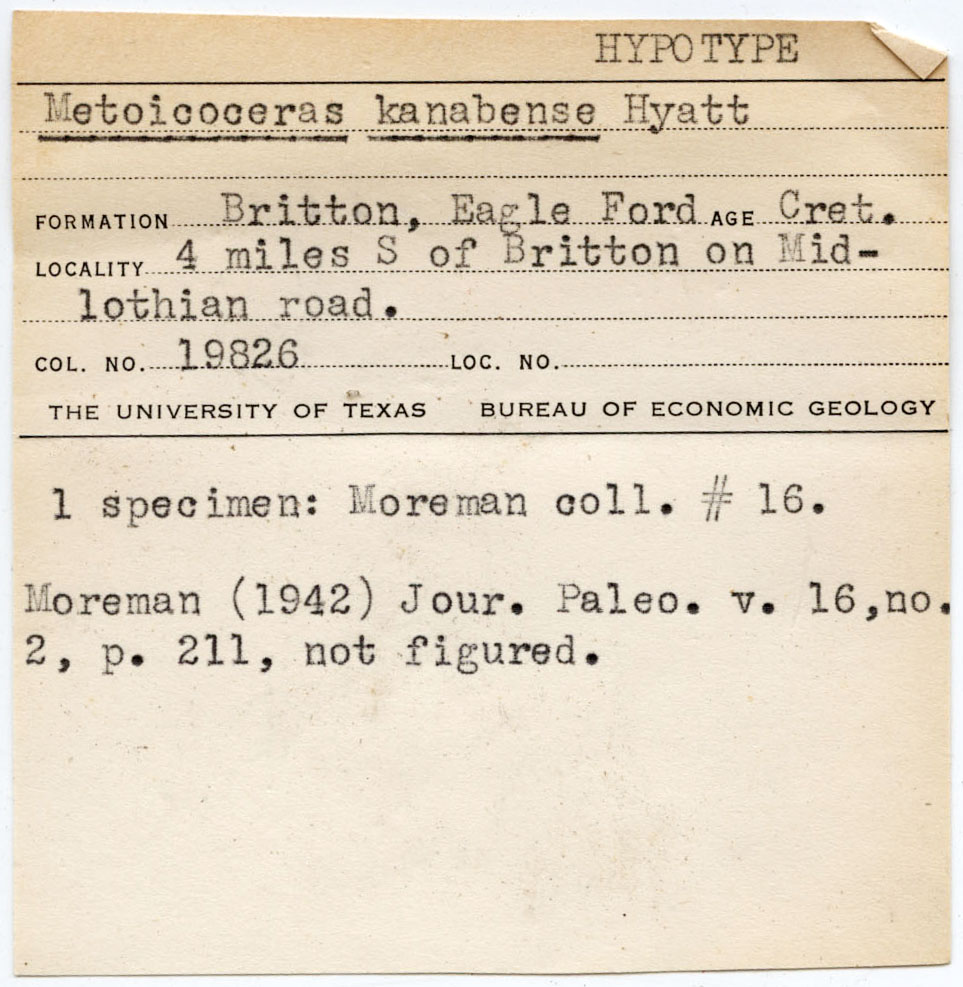 HYPOTYPE
Metoicoceras kanabense Hyatt
FORMATION Britton, Eagle Ford AGE Cret.
LOCALITY 4 miles S of Britton on Mid-
lothian road.
COL. NO. 19826 LOC. NO.
THE UNIVERSITY OF TEXAS BUREAU OF ECONOMIC GEOLOGY
1 specimen: Moreman coll. # 16.
Moreman (1942) Jour. Paleo. v. 16,no.
2, p. 211, not figured.